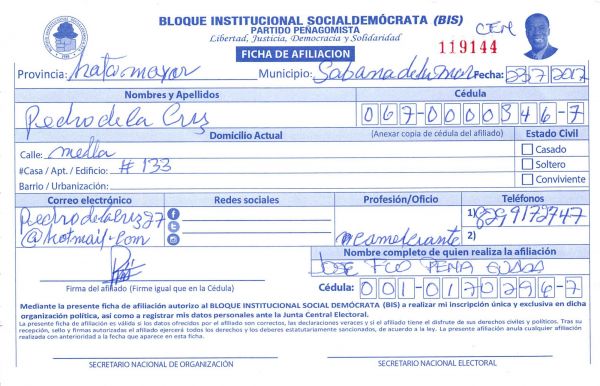 BLOQUE INSTITUCIONAL SOCIALDEMÓCRATA (BIS)
PARTIDO PEÑAGOMISTA
Libertad, Justicia, Democracia y Solidaridad
FICHA DE AFILIACION
119144
Provincia: hato mayor Municipio: Sabana de la mar Fecha:
Nombres y Apellidos Cédula
Pedro de la Cruz 067-0000346-7
Domicilio Actual (Anexar copia de cédula del afiliado) Estado Civil
Calle: mella Casado
#Casa / Apt. / Edificio: # 133 Soltero
Barrio / Urbanización: Conviviente
Correo electrónico Redes sociales Profesión/Oficio Teléfonos
Pedrodelacruz27 1) 8299172747
@hotmail.com 2)
Nombre completo de quien realiza la afiliación
JOSE FCO PEÑA
Firma del afiliado (Firme igual que en la Cédula) Cédula: 001-0170296-7
Mediante la presente ficha de afiliación autorizo al BLOQUE INSTITUCIONAL SOCIAL DEMÓCRATA (BIS) a realizar mi inscripción única y exclusiva en dicha
organización política, así como a registrar mis datos personales ante la Junta Central Electoral.
La presente ficha de afiliación es válida si los datos ofrecidos por el afiliado son correctos, las declaraciones veraces y si el afiliado tiene el disfrute de sus derechos civiles y políticos. Tras su
recepción, sello y firmas autorizadas el afiliado ejercerá todos los derechos y los deberes estatutariamente sancionados, de acuerdo a la ley. La presente afiliación anula cualquier afiliación
realizada con anterioridad a la fecha que aparece en esta ficha.
SECRETARIO NACIONAL DE ORGANIZACIÓN SECRETARIO NACIONAL ELECTORAL